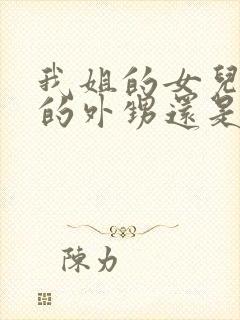 我姐的女兒
的外甥還是
陳力